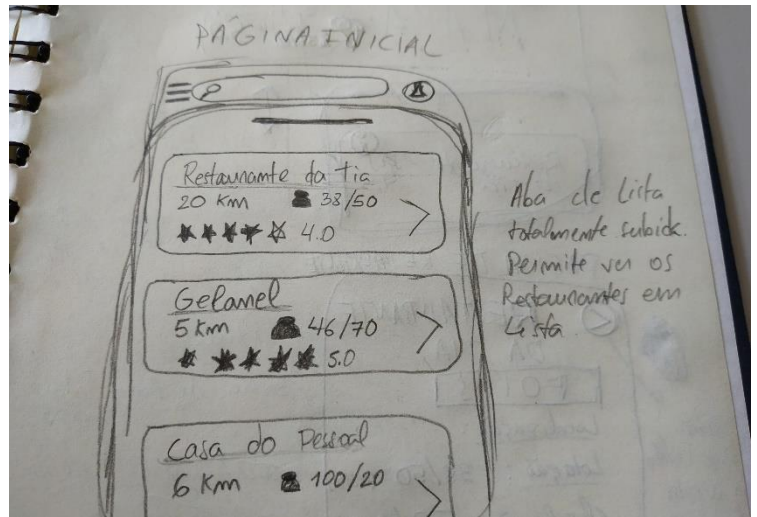 PAGINA INICIAL
Restaurante da tia
20 Km 38/50
4.0
Gelamel
5 Km 46/70
5.0
Casa do Pessoal
6 Km 100/20
Aba de Lista
totalmente subida.
Permite ver os
Restaurantes em
Lista